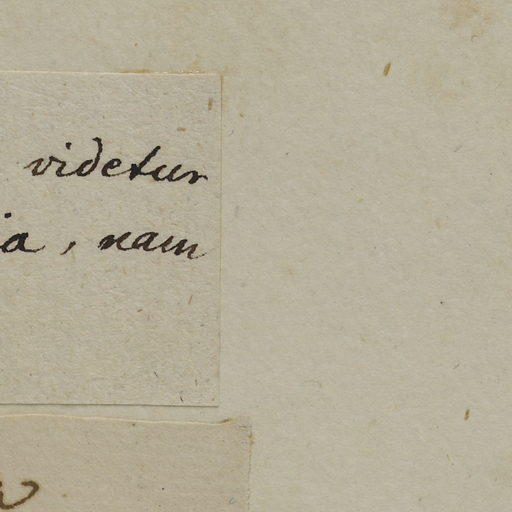 videtur
ia, nam